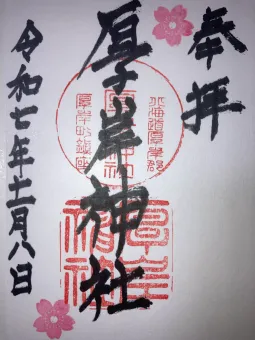 奉拝
北海道厚岸郡
厚岸神社
厚岸町鎮座
令和七年十一月八日